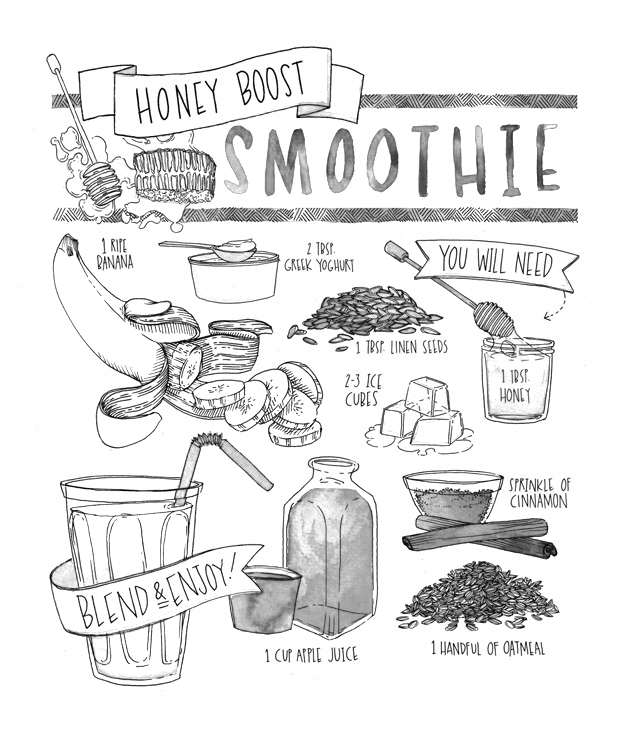 HONEY BOOST
SMOOTHIE
1 RIPE
BANANA
2 TBSP.
GREEK YOGHURT
YOU WILL NEED
1 TBSP. LINEN SEEDS
1 TBSP.
HONEY
2-3 ICE
CUBES
SPRINKLE OF
CINNAMON
BLEND & ENJOY!
1 CUP APPLE JUICE
1 HANDFUL OF OATMEAL